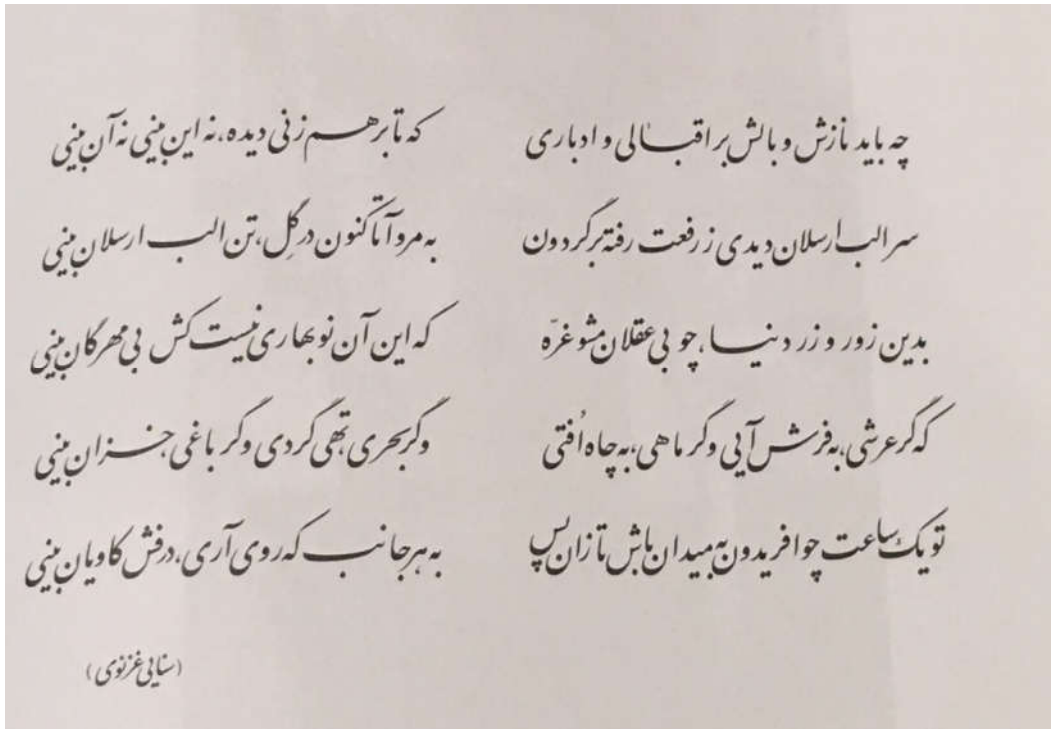 چه باید نازش و بالش بر اقبالی و ادباری که تا بر هم زنی دیده، نه این بینی نه آن بینی
سر الب ارسلان دیدی ز رفعت رفته بر گردون به مرو آ تا کنون در گِل، تن الب ارسلان بینی
بدین زور و زر دنیا، چو بی عقلان مشو غرّه که این آن نوبهاری نیست کش بی مهرگان بینی
که گر عرشی، به فرش آیی و گر ماهی، به چاه اُفتی و گر بحری تهی گردی و گر باغی، خزان بینی
تو یک ساعت چو افریدون به میدان باش تا زان پس به هر جانب که روی آری، درفش کاویان بینی
(سنایی غزنوی)